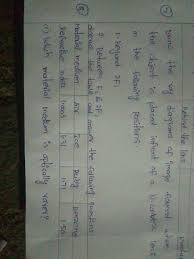 behind the lens.
7) Draw the ray diagrams of image formed when
the object is placed infront of a biconvex lens
in the following positions
1. beyond 2F1
2. Between F1 & 2F1
8) observe the table and answer the following questions
material medium Air Ice Ruby benzene
Refractive index 1.0003 1.31 1.71 1.50
(i) which material medium is optically rarer?